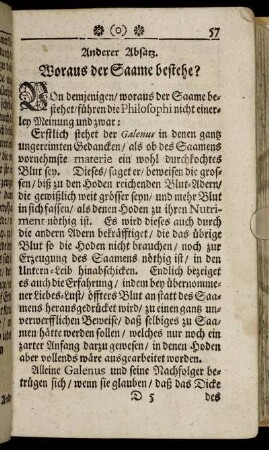 ❀ (0) ❀ 57
Anderer Absatz.
Woraus der Saame bestehe?
VOn demjenigen/ woraus der Saame be-
stehet/ führen die Philosophi nicht einer-
ley Meinung und zwar:
Erstlich stehet der Galenus in denen gantz
ungereimten Gedancken/ als ob des Saamens
vornehmste materie ein wohl durchkochtes
Blut sey. Dieses/ saget er/ beweisen die gros-
sen/ biß zu den Hoden reichenden Blut-Adern/
die gewißlich weit grösser seyn/ und mehr Blut
in sich fassen/ als denen Hoden zu ihren Nutri-
ment nöthig ist. Es wird dieses auch durch
die andern Adern bekräfftiget/ die das übrige
Blut so die Hoden nicht brauchen/ noch zur
Erzeugung des Saamens nöthig ist/ in den
Untern-Leib hinabschicken. Endlich bezeiget
es auch die Erfahrung/ indem bey übernomme-
ner Liebes-Lust/ öffters Blut an statt des Saa-
mens herausgedrückt wird/ zu einen gantz un-
verwerfflichen Beweise/ daß selbiges zu Saa-
men hätte werden sollen/ welches nur noch ein
zarter Anfang darzu gewesen/ in denen Hoden
aber vollends wäre ausgearbeitet worden.
Alleine Galenus und seine Nachfolger be-
trügen sich/ wenn sie glauben/ daß das Dicke
D 5 des